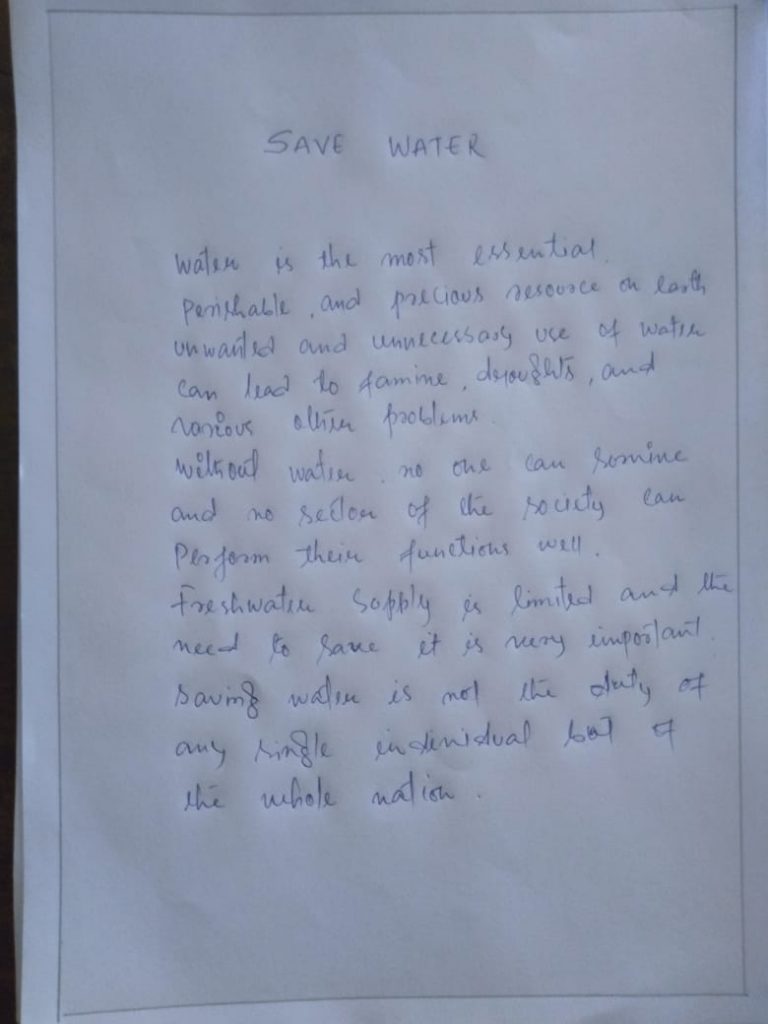 SAVE WATER
Water is the most essential.
Perishable, and precious resource on earth
unwanted and unnecessary use of water
can lead to famine, droughts, and
various other problems.
Without water, no one can
and no sector of the society can
Perform their functions well.
Freshwater Supply is limited and the
need to save it is very important.
Saving water is not the duty of
any single individual but of
the whole nation.